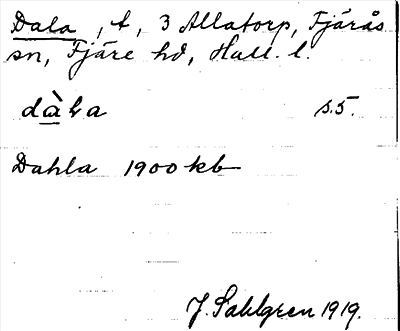 Dala, t, 3 Allatorp, Fjärås
sn, Fjäre hd, Hall. l.
dàla s. 5.
Dahla 1900 kb
J. Sahlgren 1919.